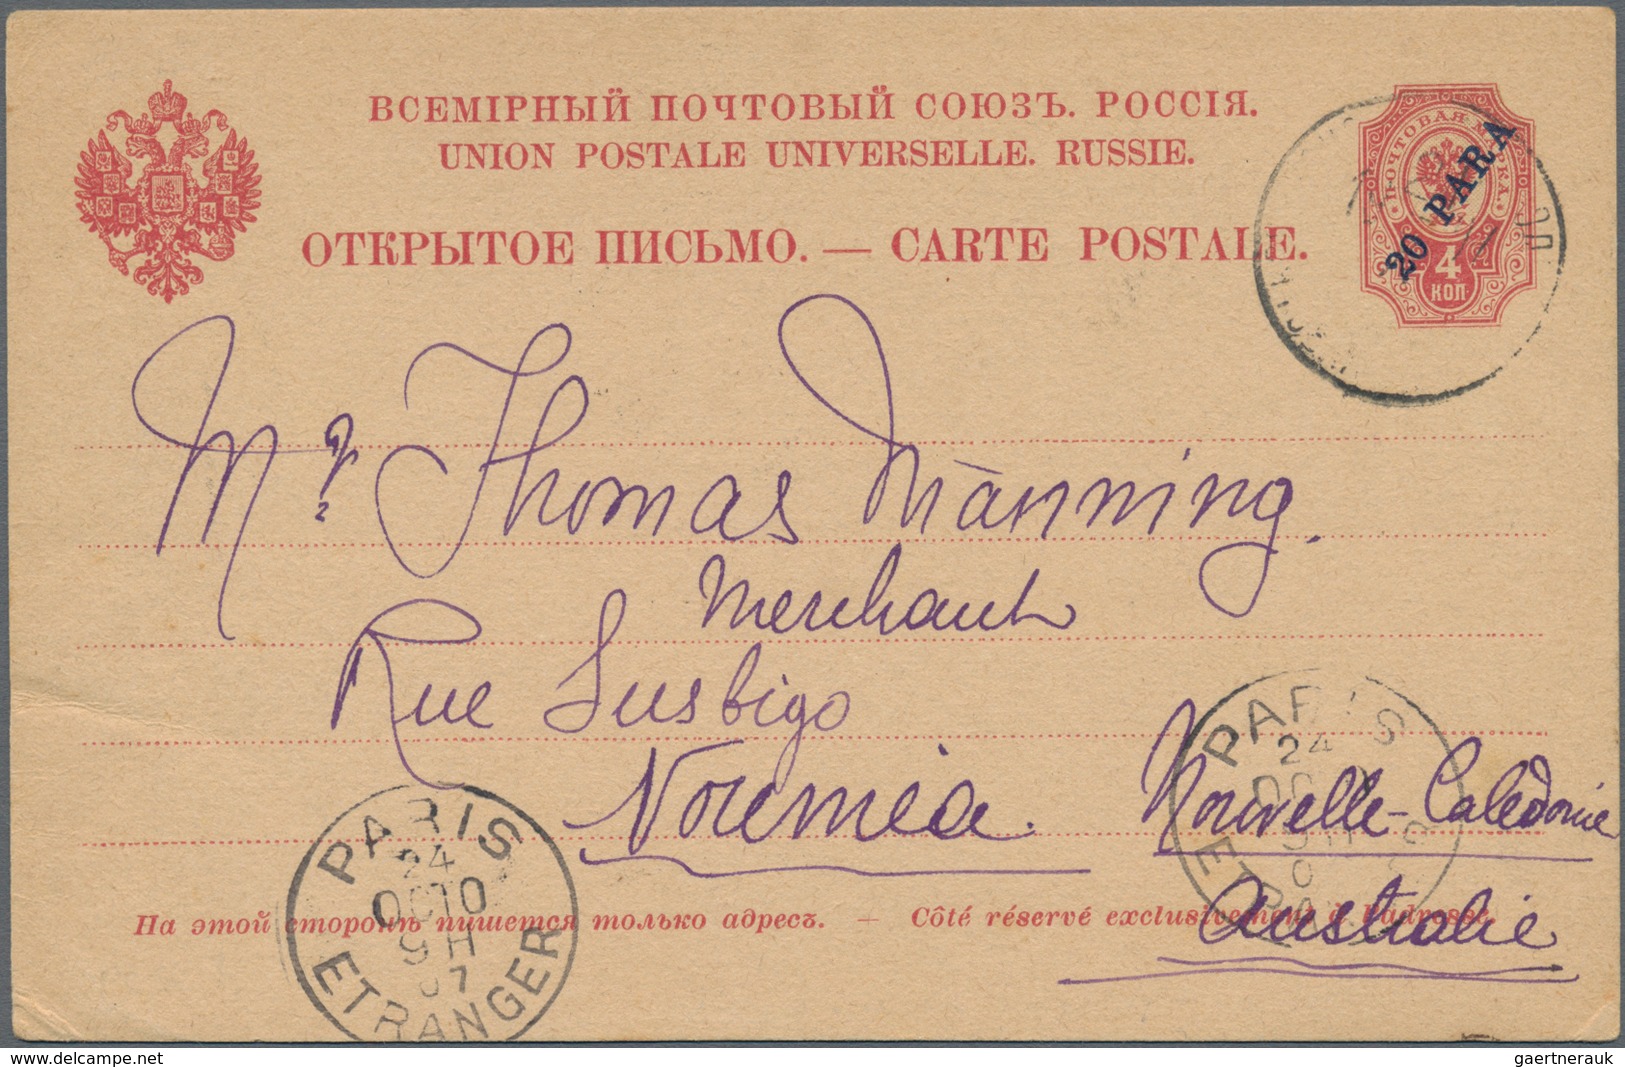 ВСЕМІРНЫЙ ПОЧТОВЫЙ СОЮЗЪ. РОССІЯ.
UNION POSTALE UNIVERSELLE. RUSSIE.
ОТКРЫТОЕ ПИСЬМО. — CARTE POSTALE.
ПОЧТОВАЯ МАРКА
20 PARA
4
КОП
Mr Thomas Manning.
Merchant
Rue Susbigo
Noumea. Nouvelle-Calédonie
Australie
PARIS
24
OCTO
9 H
07
ETRANGER
PARIS
24
На этой сторонѣ пишется только адресъ. — Côté réservé exclusivement à l'adresse.
www.delcampe.net
gaertnerauk